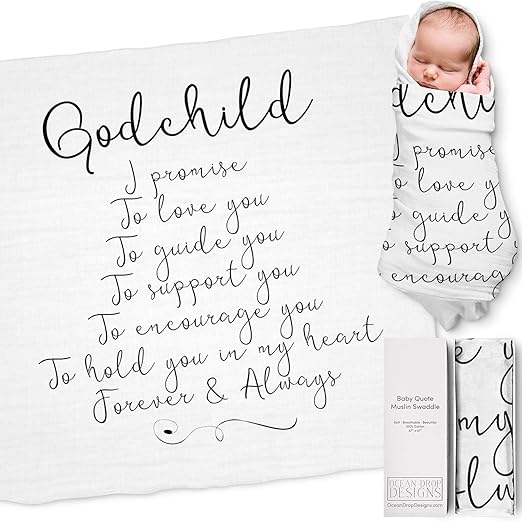 Godchild
I promise
To love you
To guide you
To support you
To encourage you
To hold you in my heart
Forever & Always
dchil
I promise
To love y
To guide yo
To support
encourag
Baby Quote
Muslin Swaddle
Soft · Breathable · Beautiful
100% Cotton
47" x 47"
OCEAN DROP
DESIGNS
OceanDropDesigns.com
my
Alw